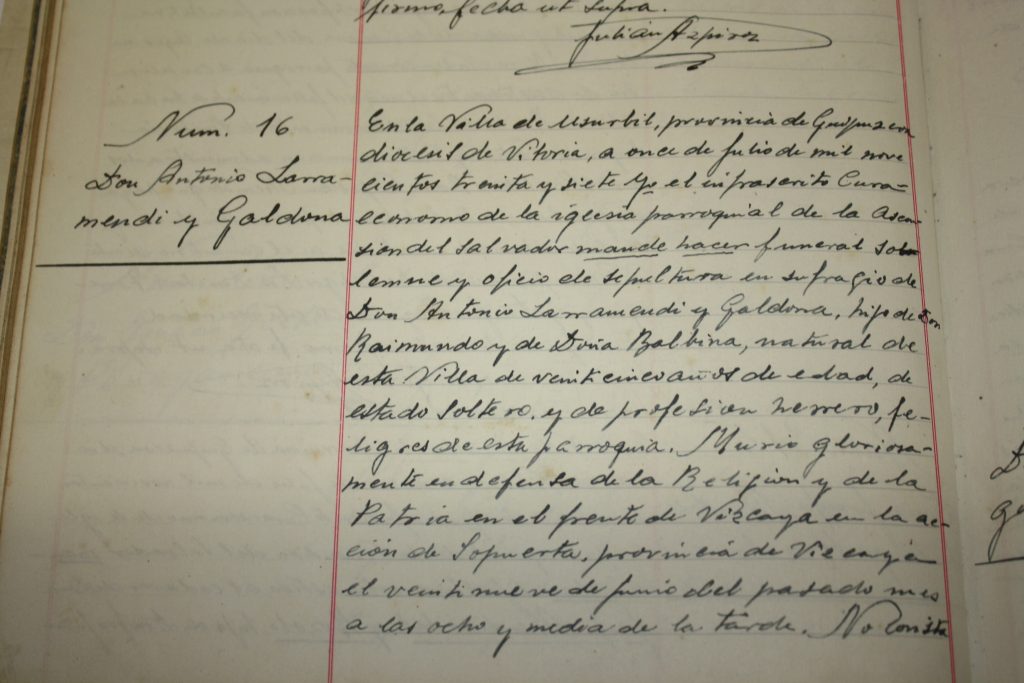 firmo, fecha ut supra.
Julián Azpiroz
Num. 16
Don Antonio Larra-
mendi y Galdona
En la Villa de Usurbil, provincia de Guipuzcoa
diocesis de Vitoria, a once de Julio de mil nove
cientos treinta y siete Yo el infrascrito Cura-
economo de la iglesia parroquial de la Ascen
sion del Salvador mandé hacer funeral so
lemne y oficio de sepultura en sufragio de
Don Antonio Larramendi y Galdona, hijo de Don
Raimundo y de Doña Balbina, natural de
esta Villa de veinticinco años de edad, de
estado soltero, y de profesion herrero, fe-
ligres de esta parroquia. Murio gloriosa-
mente en defensa de la Religion y de la
Patria en el frente de Vizcaya en la ac-
ción de Sopuerta, provincia de Vizcaya
el veintinueve de Junio del pasado mes
a las ocho y media de la tarde. No consta
D